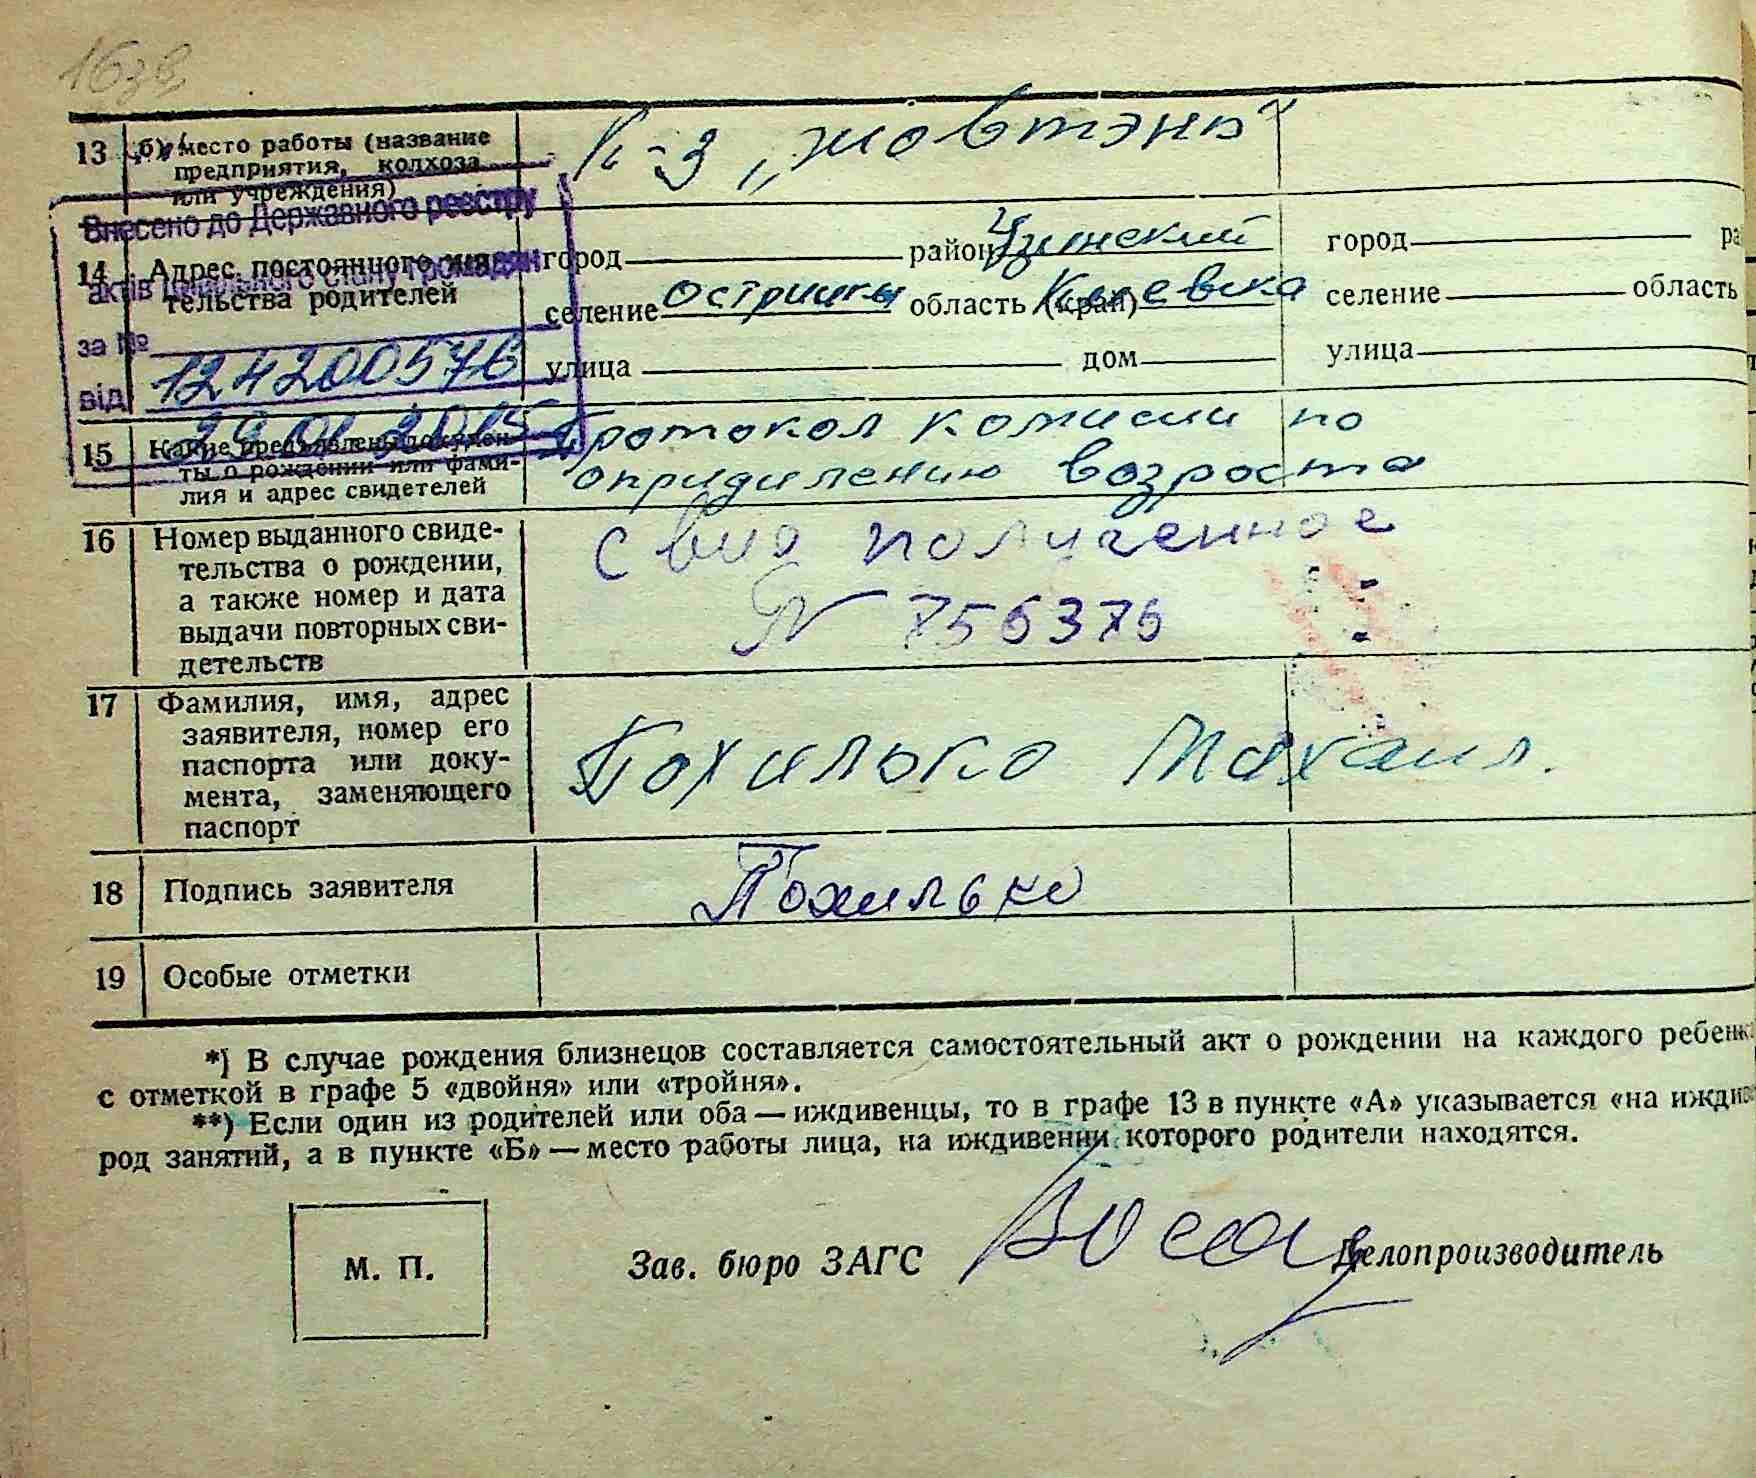 16зв
13 б) место работы (название
предприятия, колхоза
или учреждения)
К-з „жовтэнь"
Внесено до Державного реєстру
актів цивільного стану громадян
за № 124200576
від 29.01.2015
14 Адрес постоянного жи-
тельства родителей
город район Узинский город ра
селение Острийки область (край) Киевска селение область
улица дом улица
15 Какие предъявлены докумен-
ты о рождении или фами-
лия и адрес свидетелей
Протокол комисии по
опридилению возроста
16 Номер выданного свиде-
тельства о рождении,
а также номер и дата
выдачи повторных сви-
детельств
Свид полученное
N 756376
17 Фамилия, имя, адрес
заявителя, номер его
паспорта или доку-
мента, заменяющего
паспорт
Похилько Михаил.
18 Подпись заявителя
Похилько
19 Особые отметки
*) В случае рождения близнецов составляется самостоятельный акт о рождении на каждого ребенка
с отметкой в графе 5 «двойня» или «тройня».
**) Если один из родителей или оба — иждивенцы, то в графе 13 в пункте «А» указывается «на иждив
род занятий, а в пункте «Б» — место работы лица, на иждивении которого родители находятся.
М. П.
Зав. бюро ЗАГС Делопроизводитель